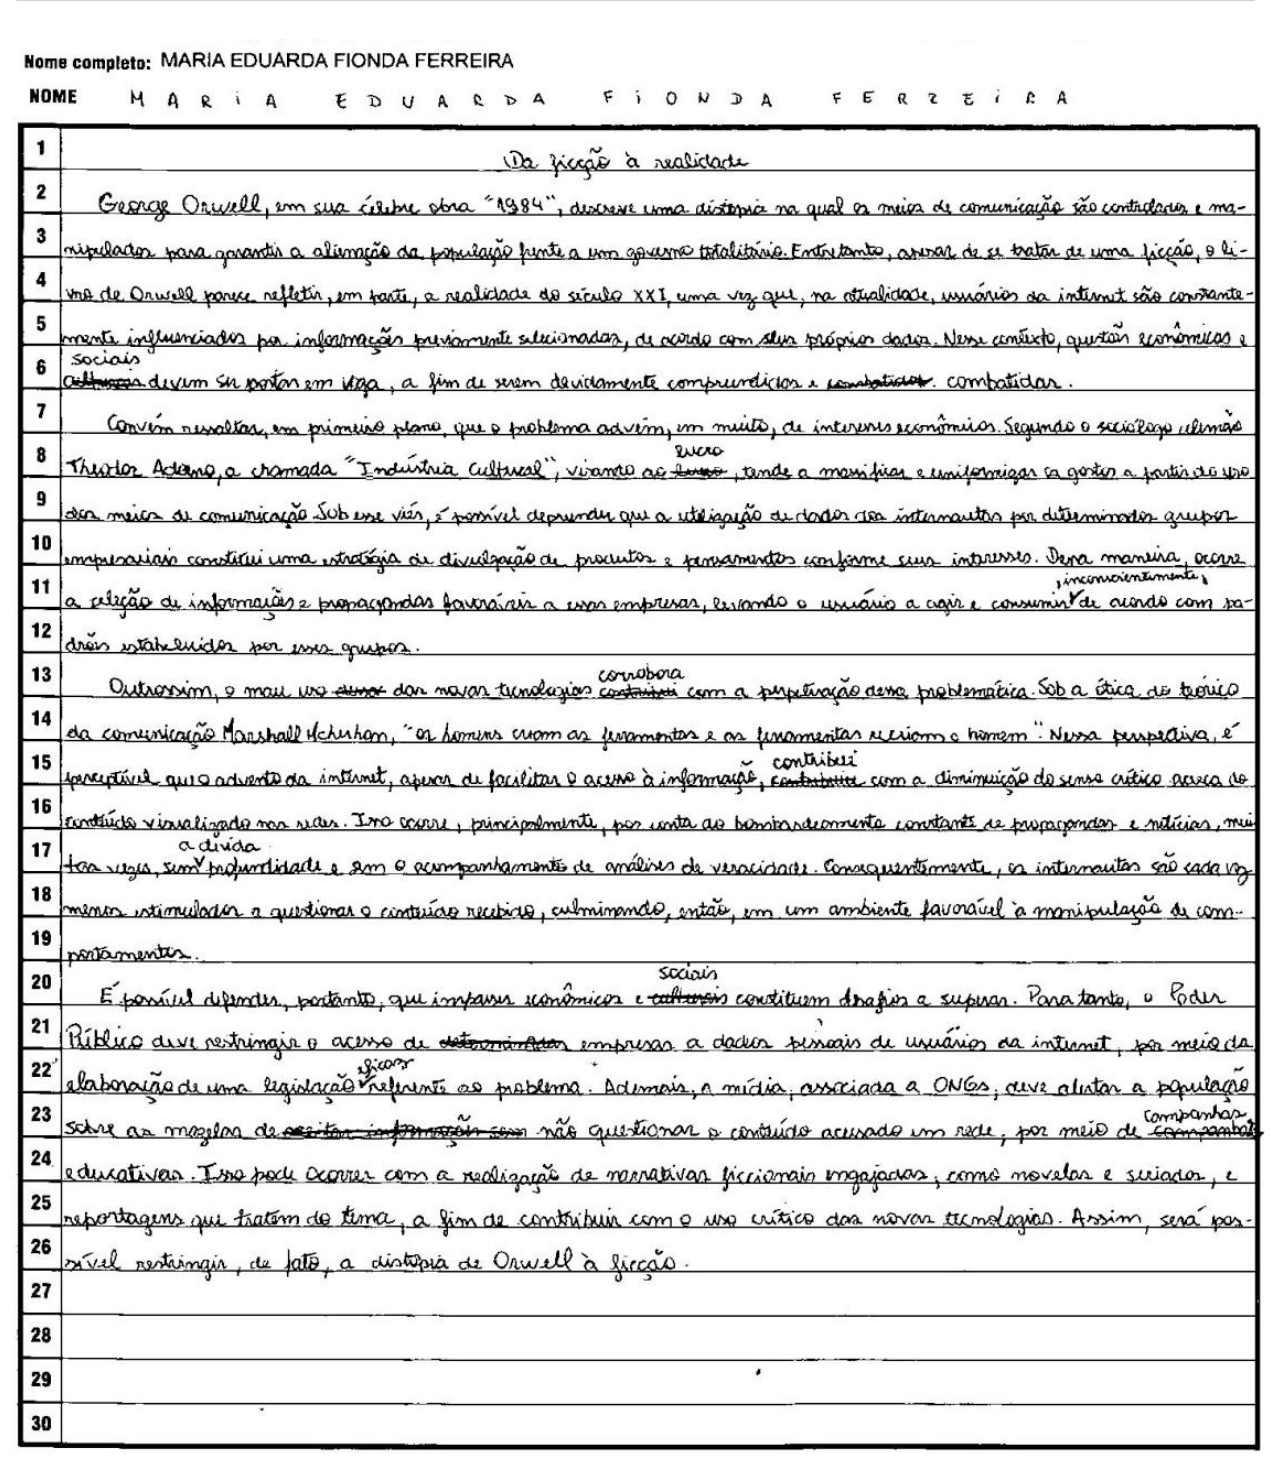 Nome completo: MARIA EDUARDA FIONDA FERREIRA
NOME MARIA EDUARDA FIONDA FERREIRA
1 Da ficção à realidade
2 George Orwell, em sua célebre obra "1984", descreve uma distopia na qual os meios de comunicação são controlados e ma-
3 nipulados para garantir a alienação da população frente a um governo totalitário. Entretanto, apesar de se tratar de uma ficção, o li-
4 vro de Orwell parece refletir, em parte, a realidade do século XXI, uma vez que, na atualidade, usuários da internet são constante-
5 mente influenciados por informações previamente selecionadas, de acordo com seus próprios dados. Nesse contexto, questões econômicas e
sociais
6 culturais devem ser postas em vigor, a fim de serem devidamente compreendidas e combatidas. combatidas.
7 Convém ressaltar, em primeiro plano, que o problema advém, em muito, de interesses econômicos. Segundo o sociólogo alemão
lucro
8 Theodor Adorno, a chamada "Indústria Cultural", visando ao lucro, tende a massificar e uniformizar os gostos a partir do uso
9 dos meios de comunicação. Sob esse viés, é possível depreender que a utilização de dados dos internautas por determinados grupos
10 empresariais constitui uma estratégia de divulgação de produtos e pensamentos conforme seus interesses. Dessa maneira, ocorre
, inconscientemente,
11 a seleção de informações e propagandas favoráveis a essas empresas, levando o usuário a agir e consumir de acordo com pa-
12 drões estabelecidos por esses grupos.
corrobora
13 Outrossim, o mau uso dessas das novas tecnologias contribui com a perpetuação dessa problemática. Sob a ótica do teórico
14 da comunicação Marshall Mcluhan, "os homens criam as ferramentas e as ferramentas recriam o homem". Nessa perspectiva, é
contribui
15 perceptível que o advento da internet, apesar de facilitar o acesso à informação, contribui com a diminuição do senso crítico acerca do
16 conteúdo visualizado nas redes. Isso ocorre, principalmente, por conta do bombardeamento constante de propagandas e notícias, mui
a devida
17 tas vezes, sem profundidade e sem o acompanhamento de análises de veracidade. Consequentemente, os internautas são cada vez
18 menos estimulados a questionar o conteúdo recebido, culminando, então, em um ambiente favorável à manipulação de com-
19 portamentos.
sociais
20 É possível defender, portanto, que impasses econômicos e culturais constituem desafios a superar. Para tanto, o Poder
21 Público deve restringir o acesso de determinadas empresas a dados pessoais de usuários da internet, por meio da
eficaz
22 elaboração de uma legislação referente ao problema. Ademais, a mídia, associada a ONGs, deve alertar a população
campanhas
23 sobre as mazelas de aceitar informação sem não questionar o conteúdo acessado em rede, por meio de campanhas
24 educativas. Isso pode ocorrer com a realização de narrativas ficcionais engajadas, como novelas e seriados, e
25 reportagens que tratem do tema, a fim de contribuir com o uso crítico das novas tecnologias. Assim, será pos-
26 sível restringir, de fato, a distopia de Orwell à ficção.
27
28
29
30